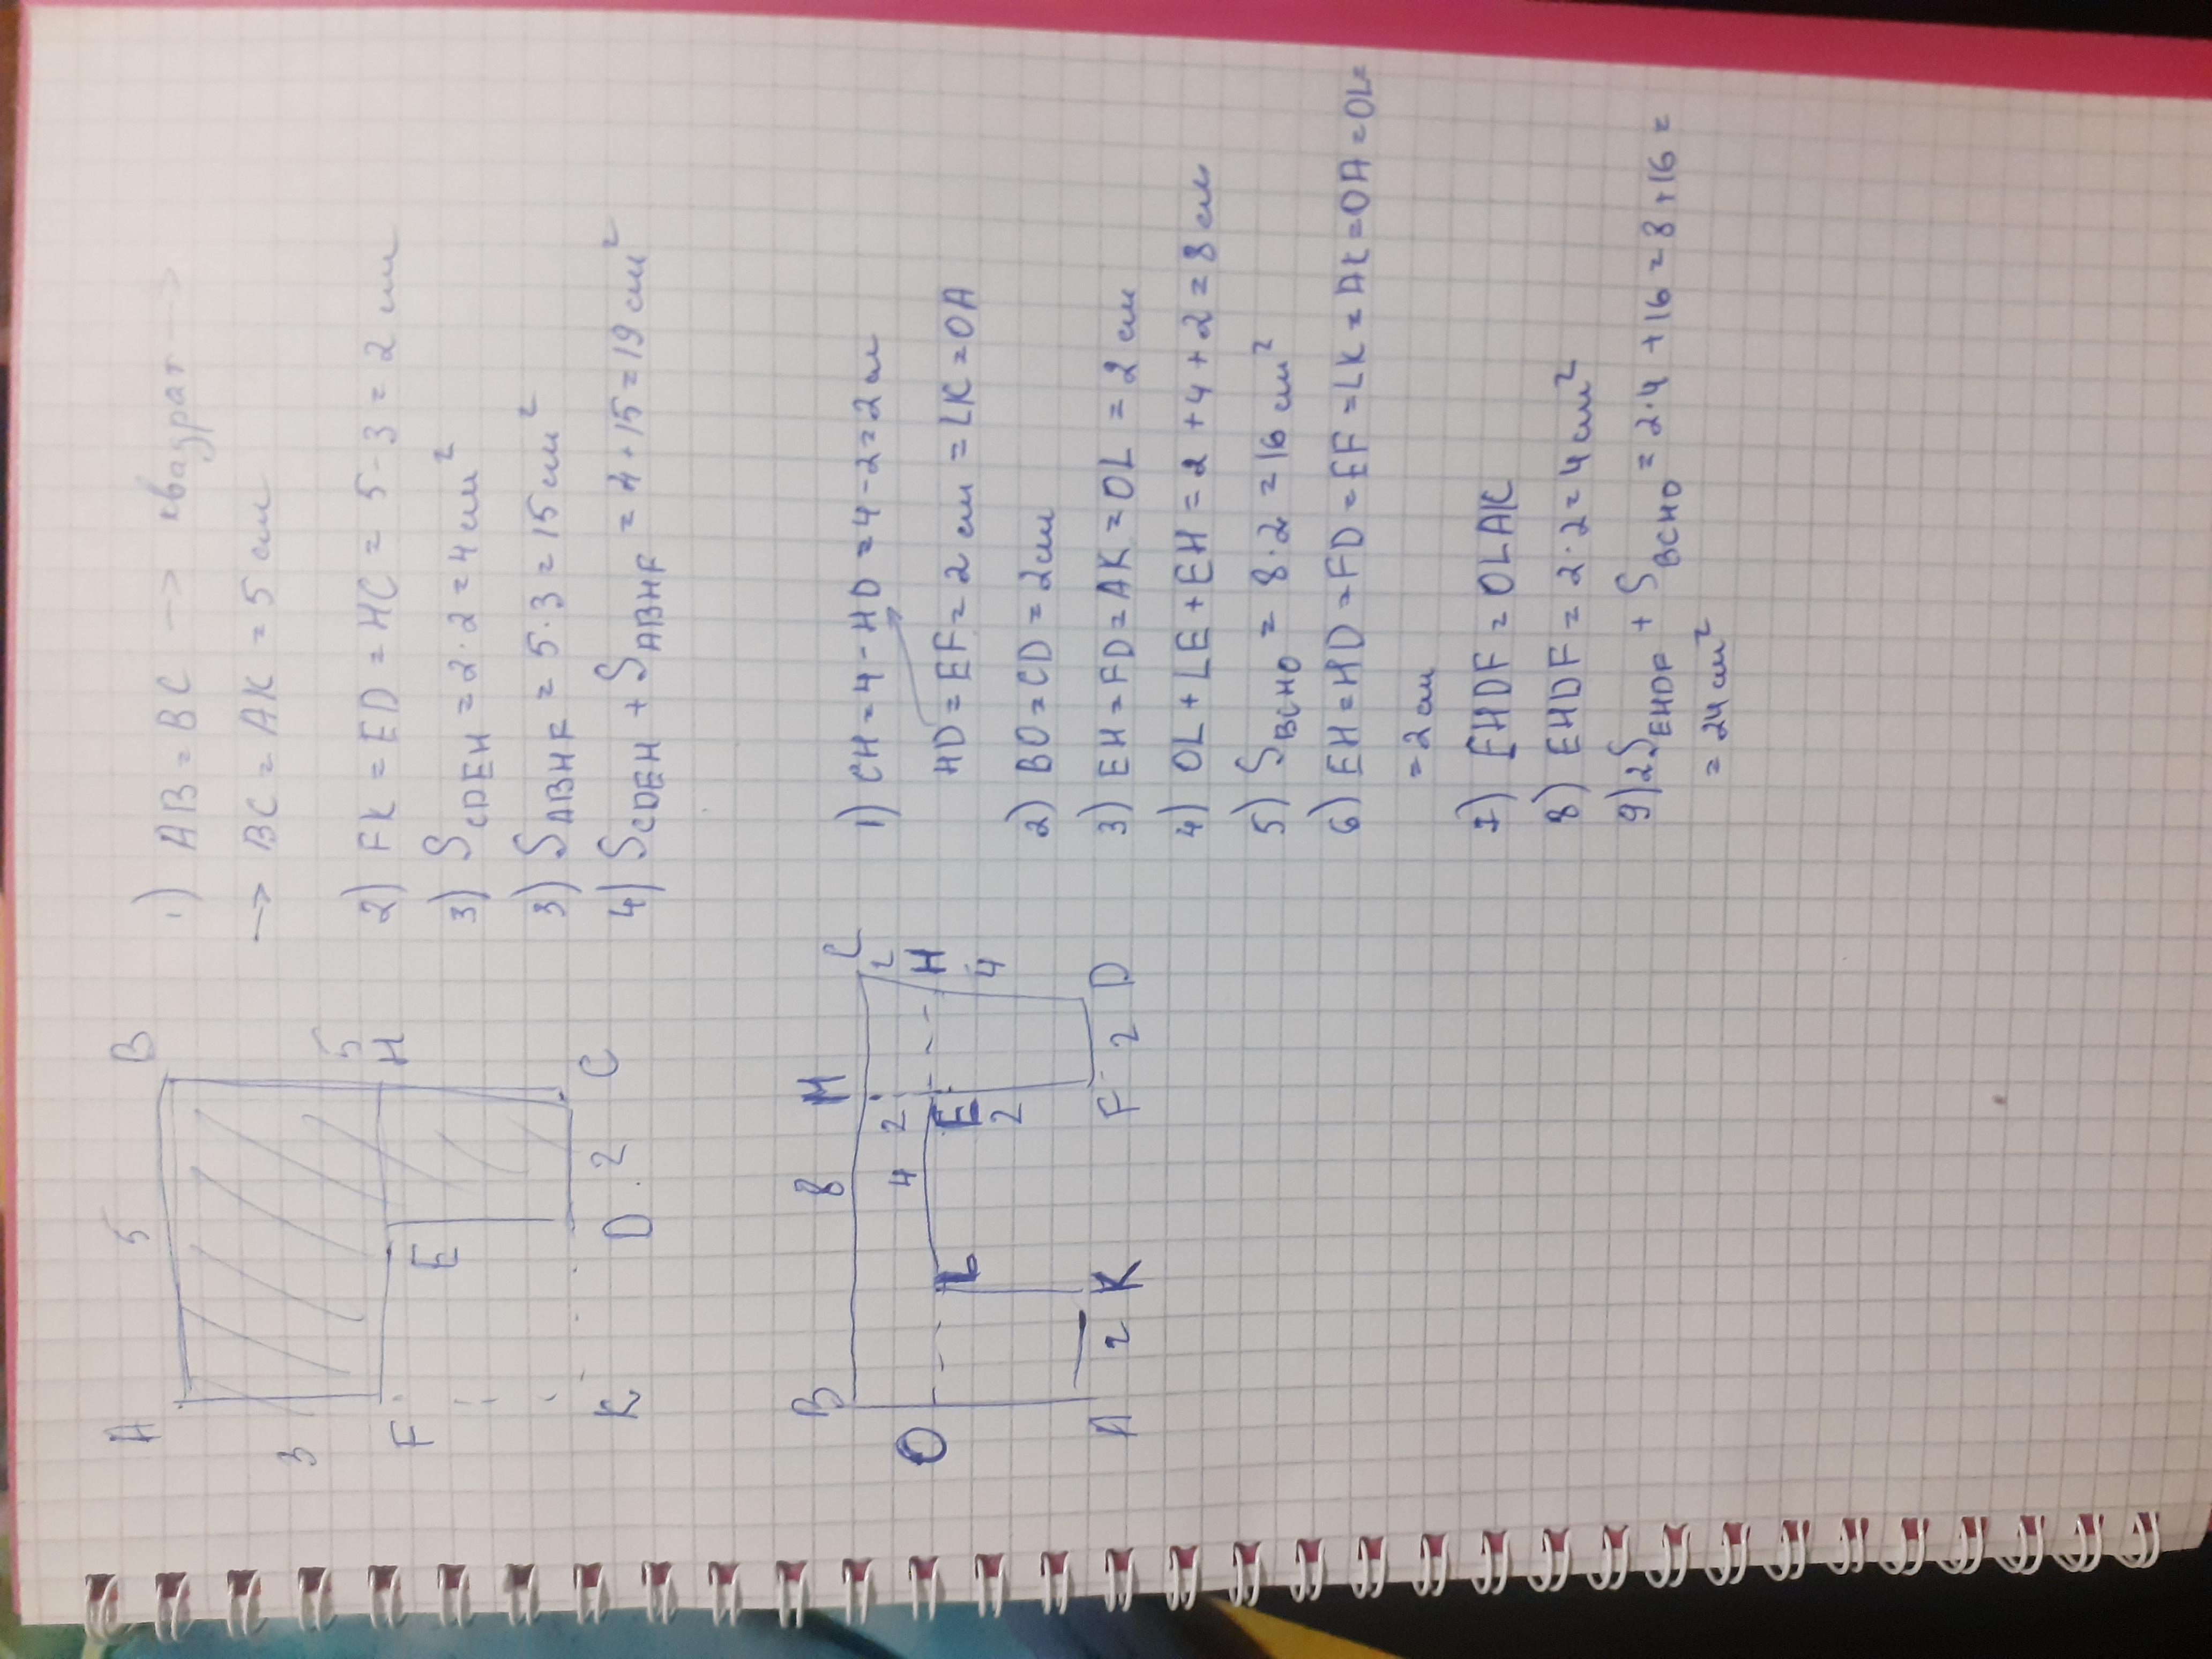 A 5 B
3
5
F E H
K D 2 C
1) AB = BC → квадрат →
→ BC = AK = 5 см
2) FK = ED = HC = 5 - 3 = 2 см
3) S CDEH = 2 · 2 = 4 см²
3) S ABHF = 5 · 3 = 15 см²
4) S CDEH + S ABHF = 4 + 15 = 19 см²
B 8 M C
2
O 4 2 H
L E 4
2
A 2 K F 2 D
1) CH = 4 - HD = 4 - 2 = 2 см
HD = EF = 2 см = LK = OA
2) BO = CD = 2 см
3) EH = FD = AK = OL = 2 см
4) OL + LE + EH = 2 + 4 + 2 = 8 см
5) S BCHO = 8 · 2 = 16 см²
6) EH = HD = FD = EF = LK = AK = OA = OL =
= 2 см
7) EHDF = OLAK
8) EHDF = 2 · 2 = 4 см²
9) 2S EHDF + S BCHO = 2 · 4 + 16 = 8 + 16 =
= 24 см²